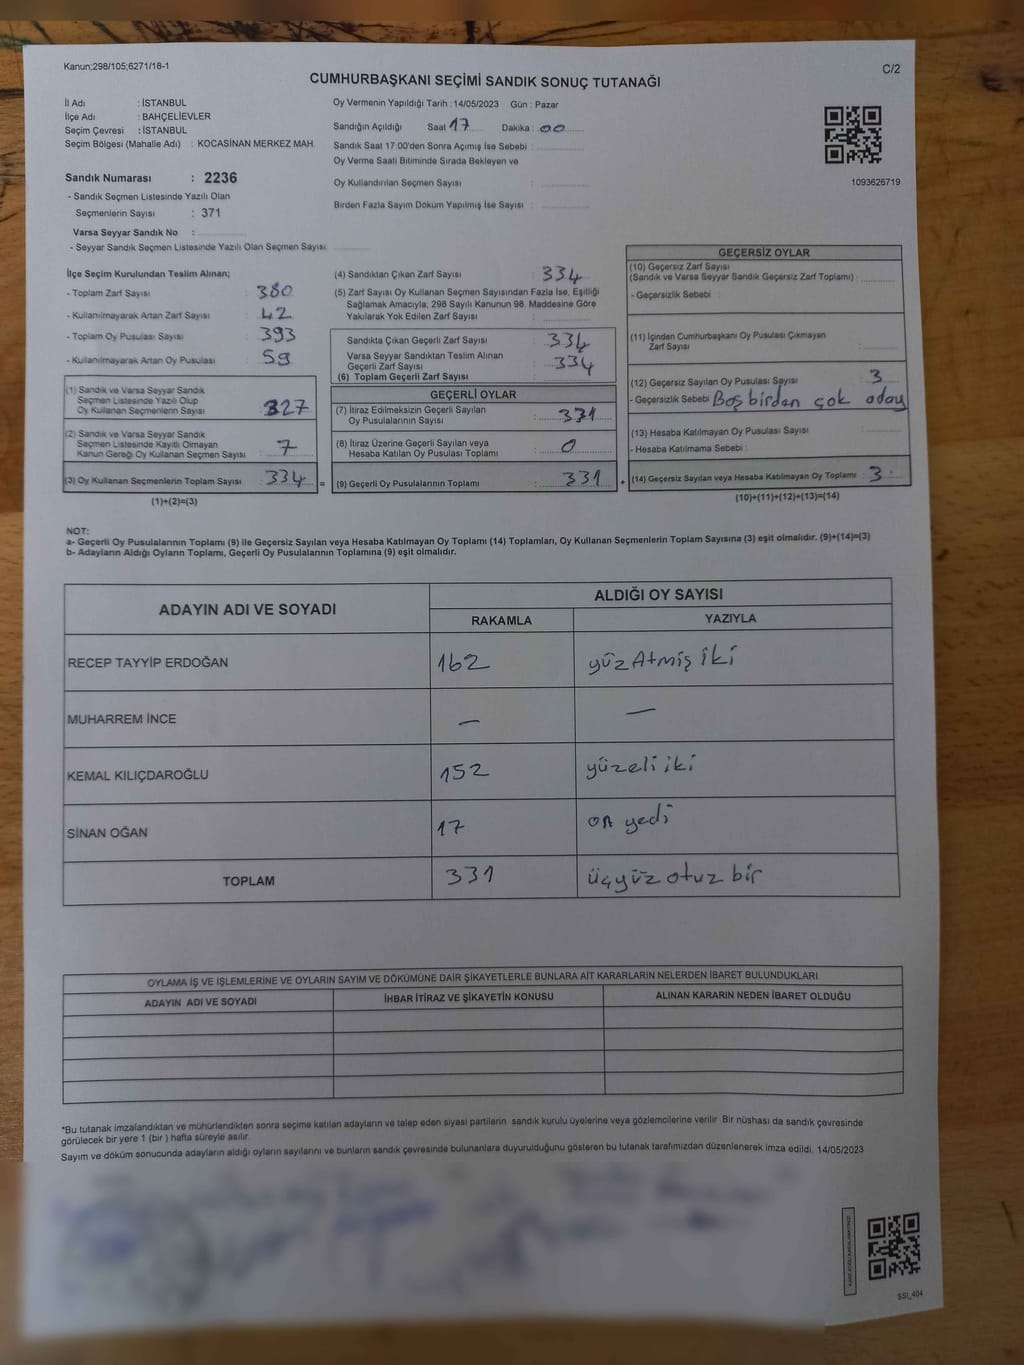 Kanun;298/105;6271/18-1
C/2
CUMHURBAŞKANI SEÇİMİ SANDIK SONUÇ TUTANAĞI
İl Adı : İSTANBUL
İlçe Adı : BAHÇELİEVLER
Seçim Çevresi : İSTANBUL
Seçim Bölgesi (Mahalle Adı) : KOCASİNAN MERKEZ MAH.
Sandık Numarası : 2236
- Sandık Seçmen Listesinde Yazılı Olan
Seçmenlerin Sayısı : 371
Varsa Seyyar Sandık No :
- Seyyar Sandık Seçmen Listesinde Yazılı Olan Seçmen Sayısı:
Oy Vermenin Yapıldığı Tarih : 14/05/2023 Gün : Pazar
Sandığın Açıldığı Saat 17 Dakika : 00
Sandık Saat 17:00'den Sonra Açımış İse Sebebi :
Oy Verme Saati Bitiminde Sırada Bekleyen ve
Oy Kullandırılan Seçmen Sayısı :
Birden Fazla Sayım Döküm Yapılmış İse Sayısı :
1093626719
İlçe Seçim Kurulundan Teslim Alınan;
- Toplam Zarf Sayısı : 380
- Kullanılmayarak Artan Zarf Sayısı : 42
- Toplam Oy Pusulası Sayısı : 393
- Kullanılmayarak Artan Oy Pusulası : 59
(1) Sandık ve Varsa Seyyar Sandık
Seçmen Listesinde Yazılı Olup
Oy Kullanan Seçmenlerin Sayısı : 327
(2) Sandık ve Varsa Seyyar Sandık
Seçmen Listesinde Kayıtlı Olmayan
Kanun Gereği Oy Kullanan Seçmen Sayısı : 7
(3) Oy Kullanan Seçmenlerin Toplam Sayısı : 334 =
(1)+(2)=(3)
(4) Sandıktan Çıkan Zarf Sayısı : 334
(5) Zarf Sayısı Oy Kullanan Seçmen Sayısından Fazla İse, Eşitliği
Sağlamak Amacıyla, 298 Sayılı Kanunun 98. Maddesine Göre
Yakılarak Yok Edilen Zarf Sayısı :
Sandıkta Çıkan Geçerli Zarf Sayısı : 334
Varsa Seyyar Sandıktan Teslim Alınan
Geçerli Zarf Sayısı : 334
(6) Toplam Geçerli Zarf Sayısı :
GEÇERLİ OYLAR
(7) İtiraz Edilmeksizin Geçerli Sayılan
Oy Pusulalarının Sayısı : 331
(8) İtiraz Üzerine Geçerli Sayılan veya
Hesaba Katılan Oy Pusulası Toplamı : 0
(9) Geçerli Oy Pusulalarının Toplamı : 331 +
GEÇERSİZ OYLAR
(10) Geçersiz Zarf Sayısı
(Sandık ve Varsa Seyyar Sandık Geçersiz Zarf Toplamı) :
- Geçersizlik Sebebi :
(11) İçinden Cumhurbaşkanı Oy Pusulası Çıkmayan
Zarf Sayısı :
(12) Geçersiz Sayılan Oy Pusulası Sayısı : 3
- Geçersizlik Sebebi : Boş birden çok aday
(13) Hesaba Katılmayan Oy Pusulası Sayısı :
- Hesaba Katılmama Sebebi :
(14) Geçersiz Sayılan veya Hesaba Katılmayan Oy Toplamı : 3
(10)+(11)+(12)+(13)=(14)
NOT:
a- Geçerli Oy Pusulalarının Toplamı (9) ile Geçersiz Sayılan veya Hesaba Katılmayan Oy Toplamı (14) Toplamları, Oy Kullanan Seçmenlerin Toplam Sayısına (3) eşit olmalıdır. (9)+(14)=(3)
b- Adayların Aldığı Oyların Toplamı, Geçerli Oy Pusulalarının Toplamına (9) eşit olmalıdır.
ADAYIN ADI VE SOYADI
ALDIĞI OY SAYISI
RAKAMLA YAZIYLA
RECEP TAYYİP ERDOĞAN 162 yüz Atmış iki
MUHARREM İNCE — —
KEMAL KILIÇDAROĞLU 152 yüzeli iki
SİNAN OĞAN 17 on yedi
TOPLAM 331 üçyüz otuz bir
OYLAMA İŞ VE İŞLEMLERİNE VE OYLARIN SAYIM VE DÖKÜMÜNE DAİR ŞİKAYETLERLE BUNLARA AİT KARARLARIN NELERDEN İBARET BULUNDUKLARI
ADAYIN ADI VE SOYADI İHBAR İTİRAZ VE ŞİKAYETİN KONUSU ALINAN KARARIN NEDEN İBARET OLDUĞU
*Bu tutanak imzalandıktan ve mühürlendikten sonra seçime katılan adayların ve talep eden siyasi partilerin sandık kurulu üyelerine veya gözlemcilerine verilir. Bir nüshası da sandık çevresinde
görülecek bir yere 1 (bir ) hafta süreyle asılır.
Sayım ve döküm sonucunda adayların aldığı oyların sayılarını ve bunların sandık çevresinde bulunanlara duyurulduğunu gösteren bu tutanak tarafımızdan düzenlenerek imza edildi. 14/05/2023
SSI_404